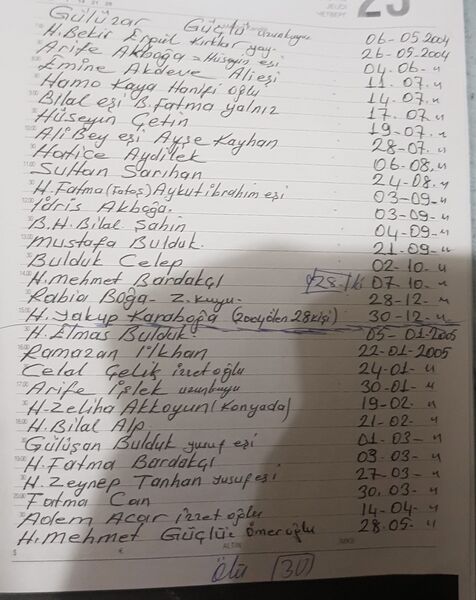 25
Gülüzar Güçlü uzunkuyu 06-05-2004
H. Bekir Ergül Kırklar yay. 26-05-2004
Arife Akboğa = Hüseyin eşi 04-06-"
Emine Akdeve Ali eşi 11-07-"
Hamo Kaya Hanifi oğlu 14-07-"
Bilal eşi B. Fatma yalnız 17-07-"
Hüseyin Çetin 19-07-"
Ali Bey eşi Ayşe Kayhan 28-07-"
Hatice Aydilek 06-08-"
Sultan Sarıhan 24-08-"
H. Fatma (Fatoş) Aykut ibrahim eşi 03-09-"
İdris Akboğa. 03-09-"
B.H. Bilal Şahin 04-09-"
Mustafa Bulduk. 21-09-"
Bulduk Celep 02-10-"
H. Mehmet Bardakçı 28 07-10-"
Rabia Boğa- Z. kuyu. 28-12-"
H. Yakup Karaboğa (2004 ölen 28 kişi) 30-12-"
H. Elmas Bulduk. 05-01-2005
Ramazan İlkhan 22-01-2005
Celal Çelik izzetoğlu 24-01-"
Arife İşlek uzunkuyu 30-01-"
H. Zeliha Akkoyun (Konyada) 19-02-"
H. Bilal Alp. 21-02-"
Gülüşan Bulduk yusuf eşi 01-03-"
H. Fatma Bardakçı 03-03-"
H. Zeynep Tanhan yusuf eşi 27-03-"
Fatma Can 30.03-"
Adem Acar izzetoğlu 14-04-"
H. Mehmet Güçlü: Ömeroğlu 28.05-"
$ € ALTIN IMKB
Ölü 30